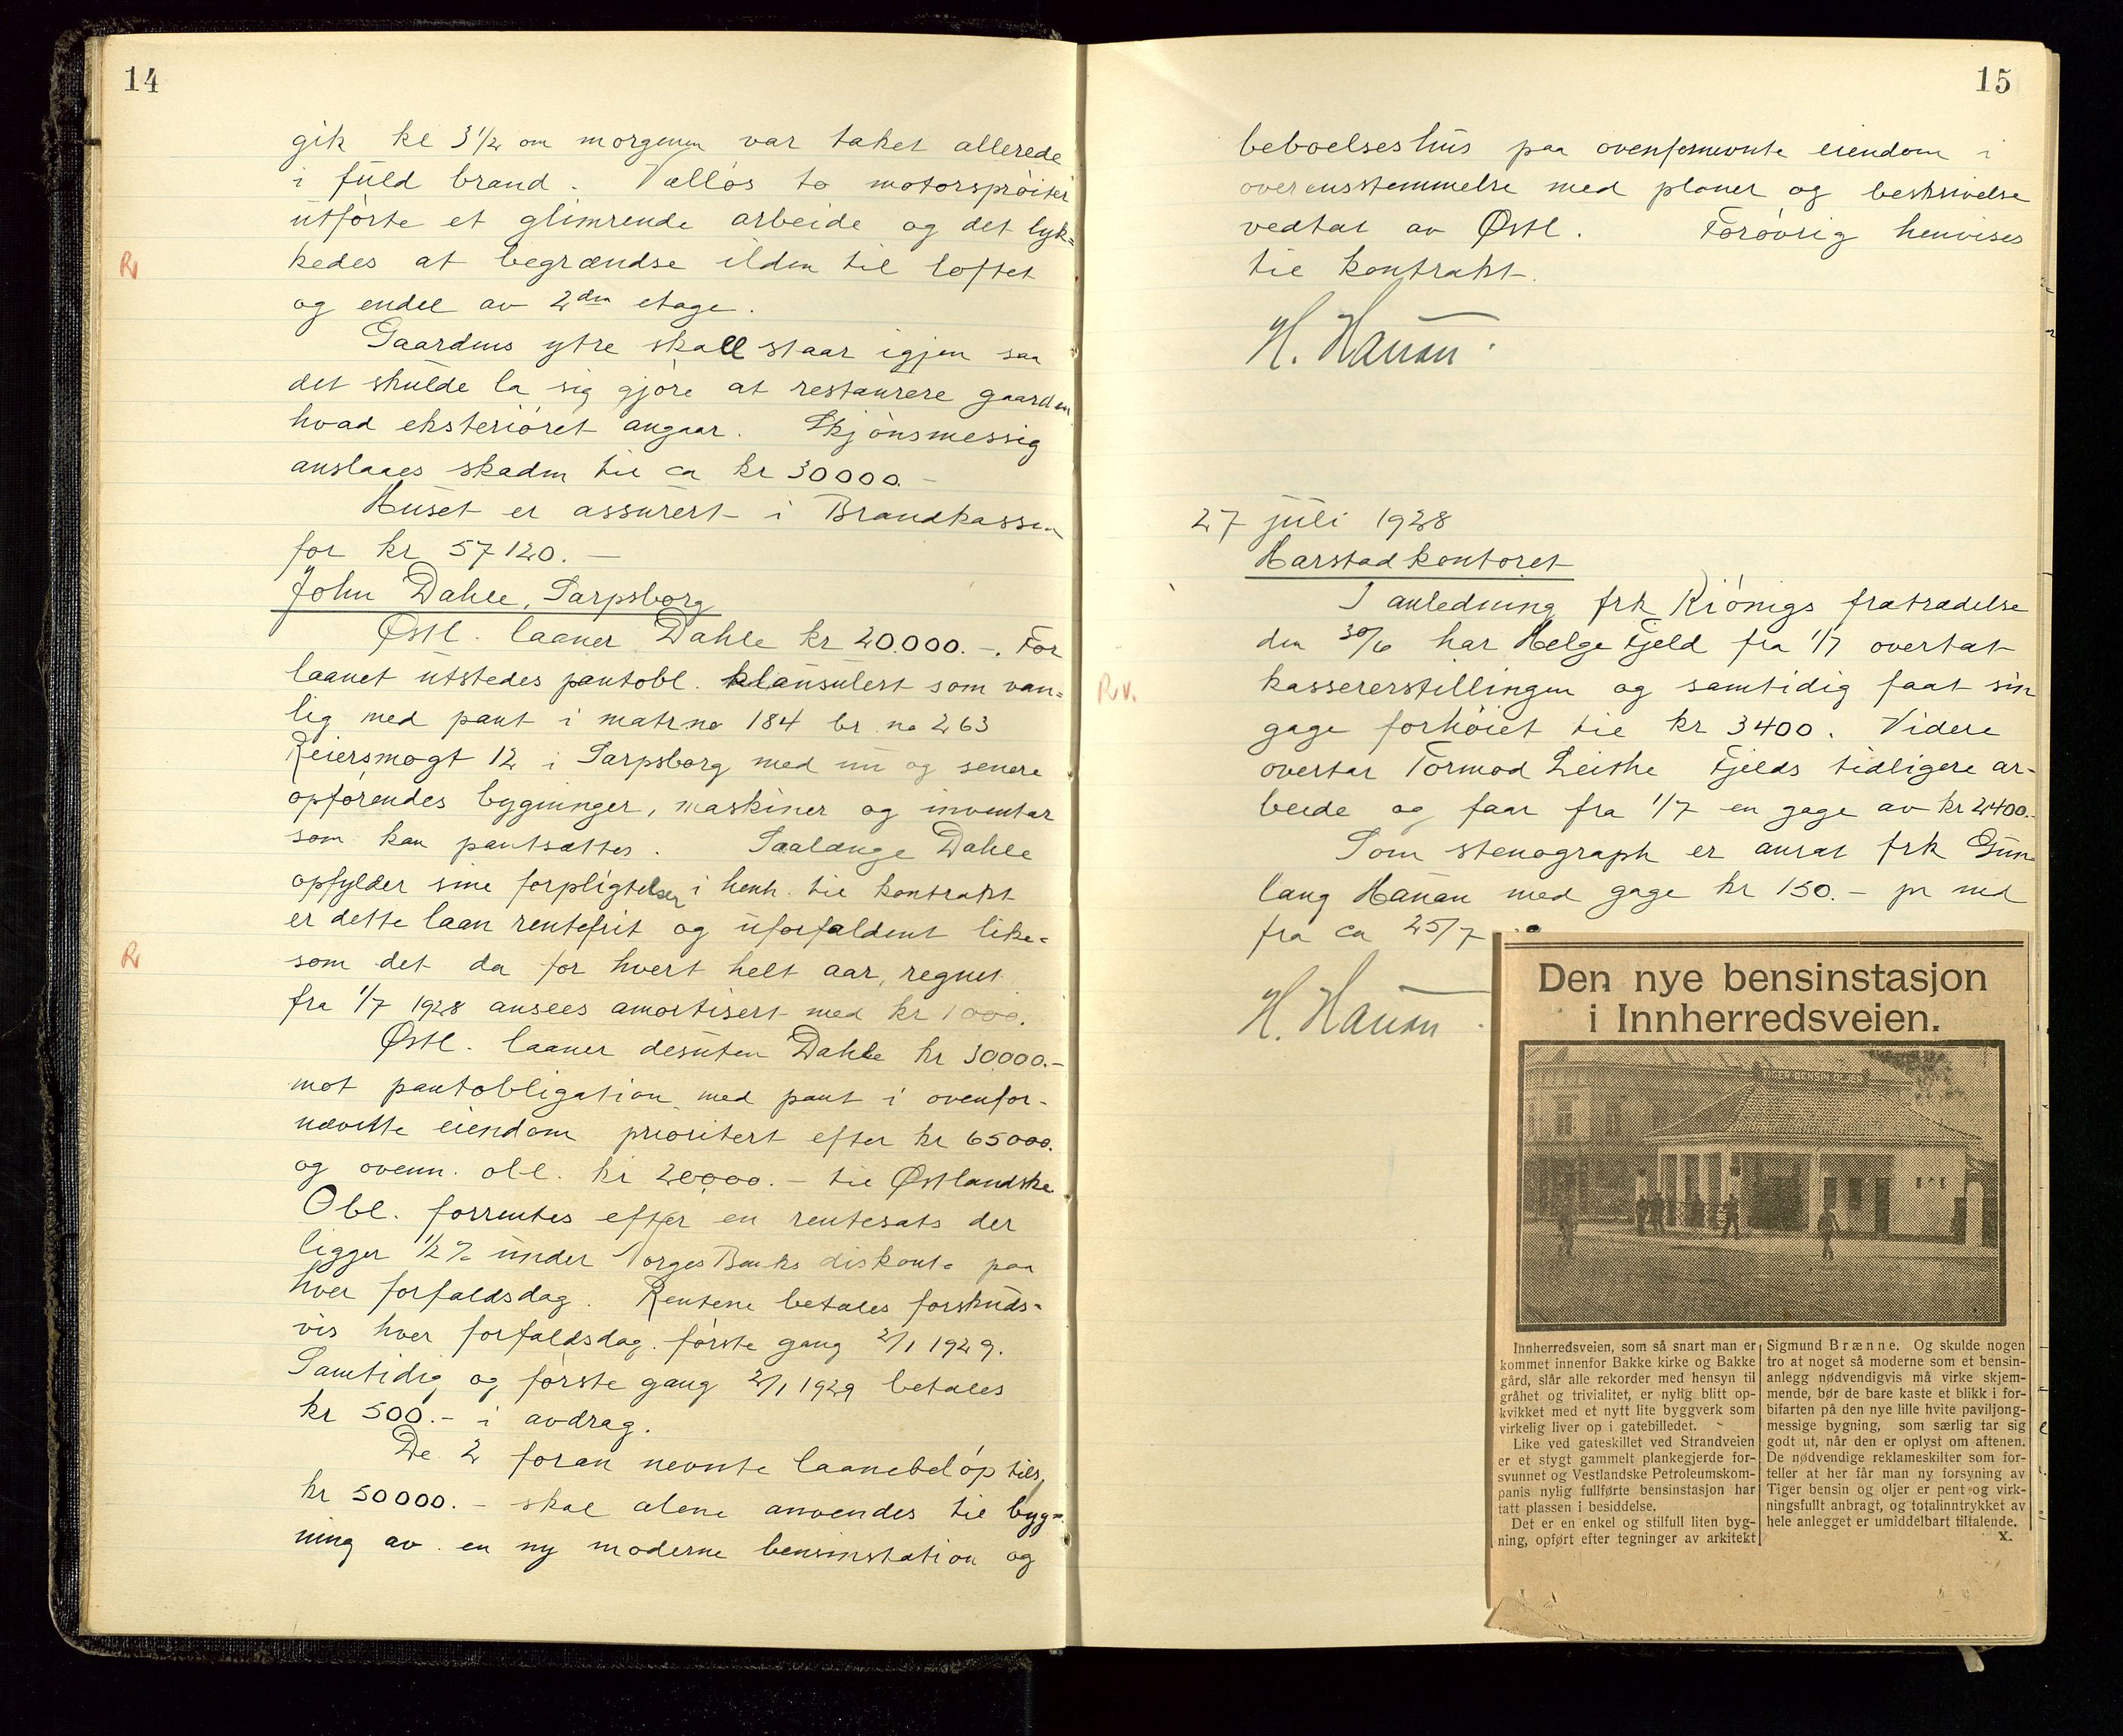 14
gik kl 3½ om morgenen var taket allerede
i fuld brand. Valløs to motorsprøiter
utførte et glimrende arbeide og det lyk=
R
kedes at begrændse ilden til loftet
og endel av 2den etage.
Gaardens ytre skall staar igjen saa
det skulde la sig gjøre at restaurere gaarden
hvad eksteriøret angaar. Skjønsmessig
anslaaes skaden til ca kr 30000.-
Huset er assurert i Brandkassen
for kr 57120.-
John Dahle, Sarpsborg
Østl. laaner Dahle kr 20.000.-. For
laanet utstedes pantobl. klausulert som van=
lig med pant i matr no 184 br no 263
Reiersmogt 12 i Sarpsborg med nu og senere
opførendes bygninger, maskiner og inventar
som kan pantsættes. Saalænge Dahle
opfylder sine forpligtelser i henh. til kontrakt
er dette laan rentefrit og uforfaldent like=
R
som det da for hvert helt aar, regnet
fra 1/7 1928 ansees amortisert med kr 1000.
Østl. laaner desuten Dahle kr 30000.-
mot pantobligation med pant i ovenfor-
nævnte eiendom prioritert efter kr 65000.
og ovenn. obl. kr 20000.- til Østlandske
Obl. forrentes efter en rentesats der
ligger ½% under Norges Banks diskonto paa
hver forfaldsdag. Rentene betales forskuds-
vis hver forfaldsdag. første gang 2/1 1929.
Samtidig og første gang 2/1 1929 betales
kr 500.- i avdrag.
De 2 foran nevnte laanebeløp tils,
kr 50000.- skal alene anvendes til byg=
ning av en ny moderne bensinstation og
15
beboelseshus paa ovenfornevnte eiendom i
overensstemmelse med planer og beskrivelse
vedtat av Østl. Forøvrig henvises
til kontrakt.
H. Hauan.
27 juli 1928
Harstadkontoret
I anledning frk Kiönigs fratrædelse
den 30/6 har Helge Fjeld fra 1/7 overtat
R.v.
kassererstillingen og samtidig faat sin
gage forhøiet til kr 3400. Videre
overtar Tormod Leithe Fjelds tidligere ar-
beide og faar fra 1/7 en gage av kr 2400.-
Som stenograph er ansat frk Gun
laug Hauan med gage kr 150.- pr md
fra ca 25/7
H. Hauan.
Den nye bensinstasjon
i Innherredsveien.
TIGER BENSIN OLJER
Innherredsveien, som så snart man er
kommet innenfor Bakke kirke og Bakke
gård, slår alle rekorder med hensyn til
gråhet og trivialitet, er nylig blitt op-
kvikket med et nytt lite byggverk som
virkelig liver op i gatebilledet.
Like ved gateskillet ved Strandveien
er et stygt gammelt plankegjerde for-
svunnet og Vestlandske Petroleumskom-
panis nylig fullførte bensinstasjon har
tatt plassen i besiddelse.
Det er en enkel og stilfull liten byg-
ning, opført efter tegninger av arkitekt
Sigmund Brænne. Og skulde nogen
tro at noget så moderne som et bensin-
anlegg nødvendigvis må virke skjem-
mende, bør de bare kaste et blikk i for-
bifarten på den nye lille hvite paviljong-
messige bygning, som særlig tar sig
godt ut, når den er oplyst om aftenen.
De nødvendige reklameskilter som for-
teller at her får man ny forsyning av
Tiger bensin og oljer er pent og virk-
ningsfullt anbragt, og totalinntrykket av
hele anlegget er umiddelbart tiltalende.
X.